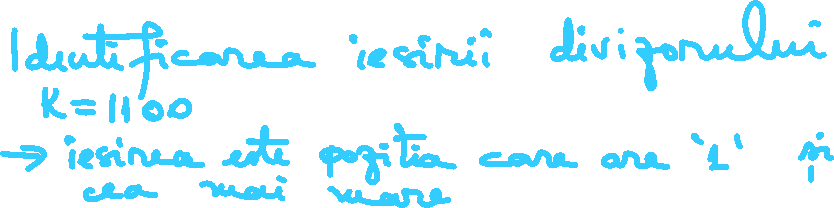 Identificarea iesirii divizorului
K=1100
→ iesirea este pozitia care are '1' și
cea mai mare